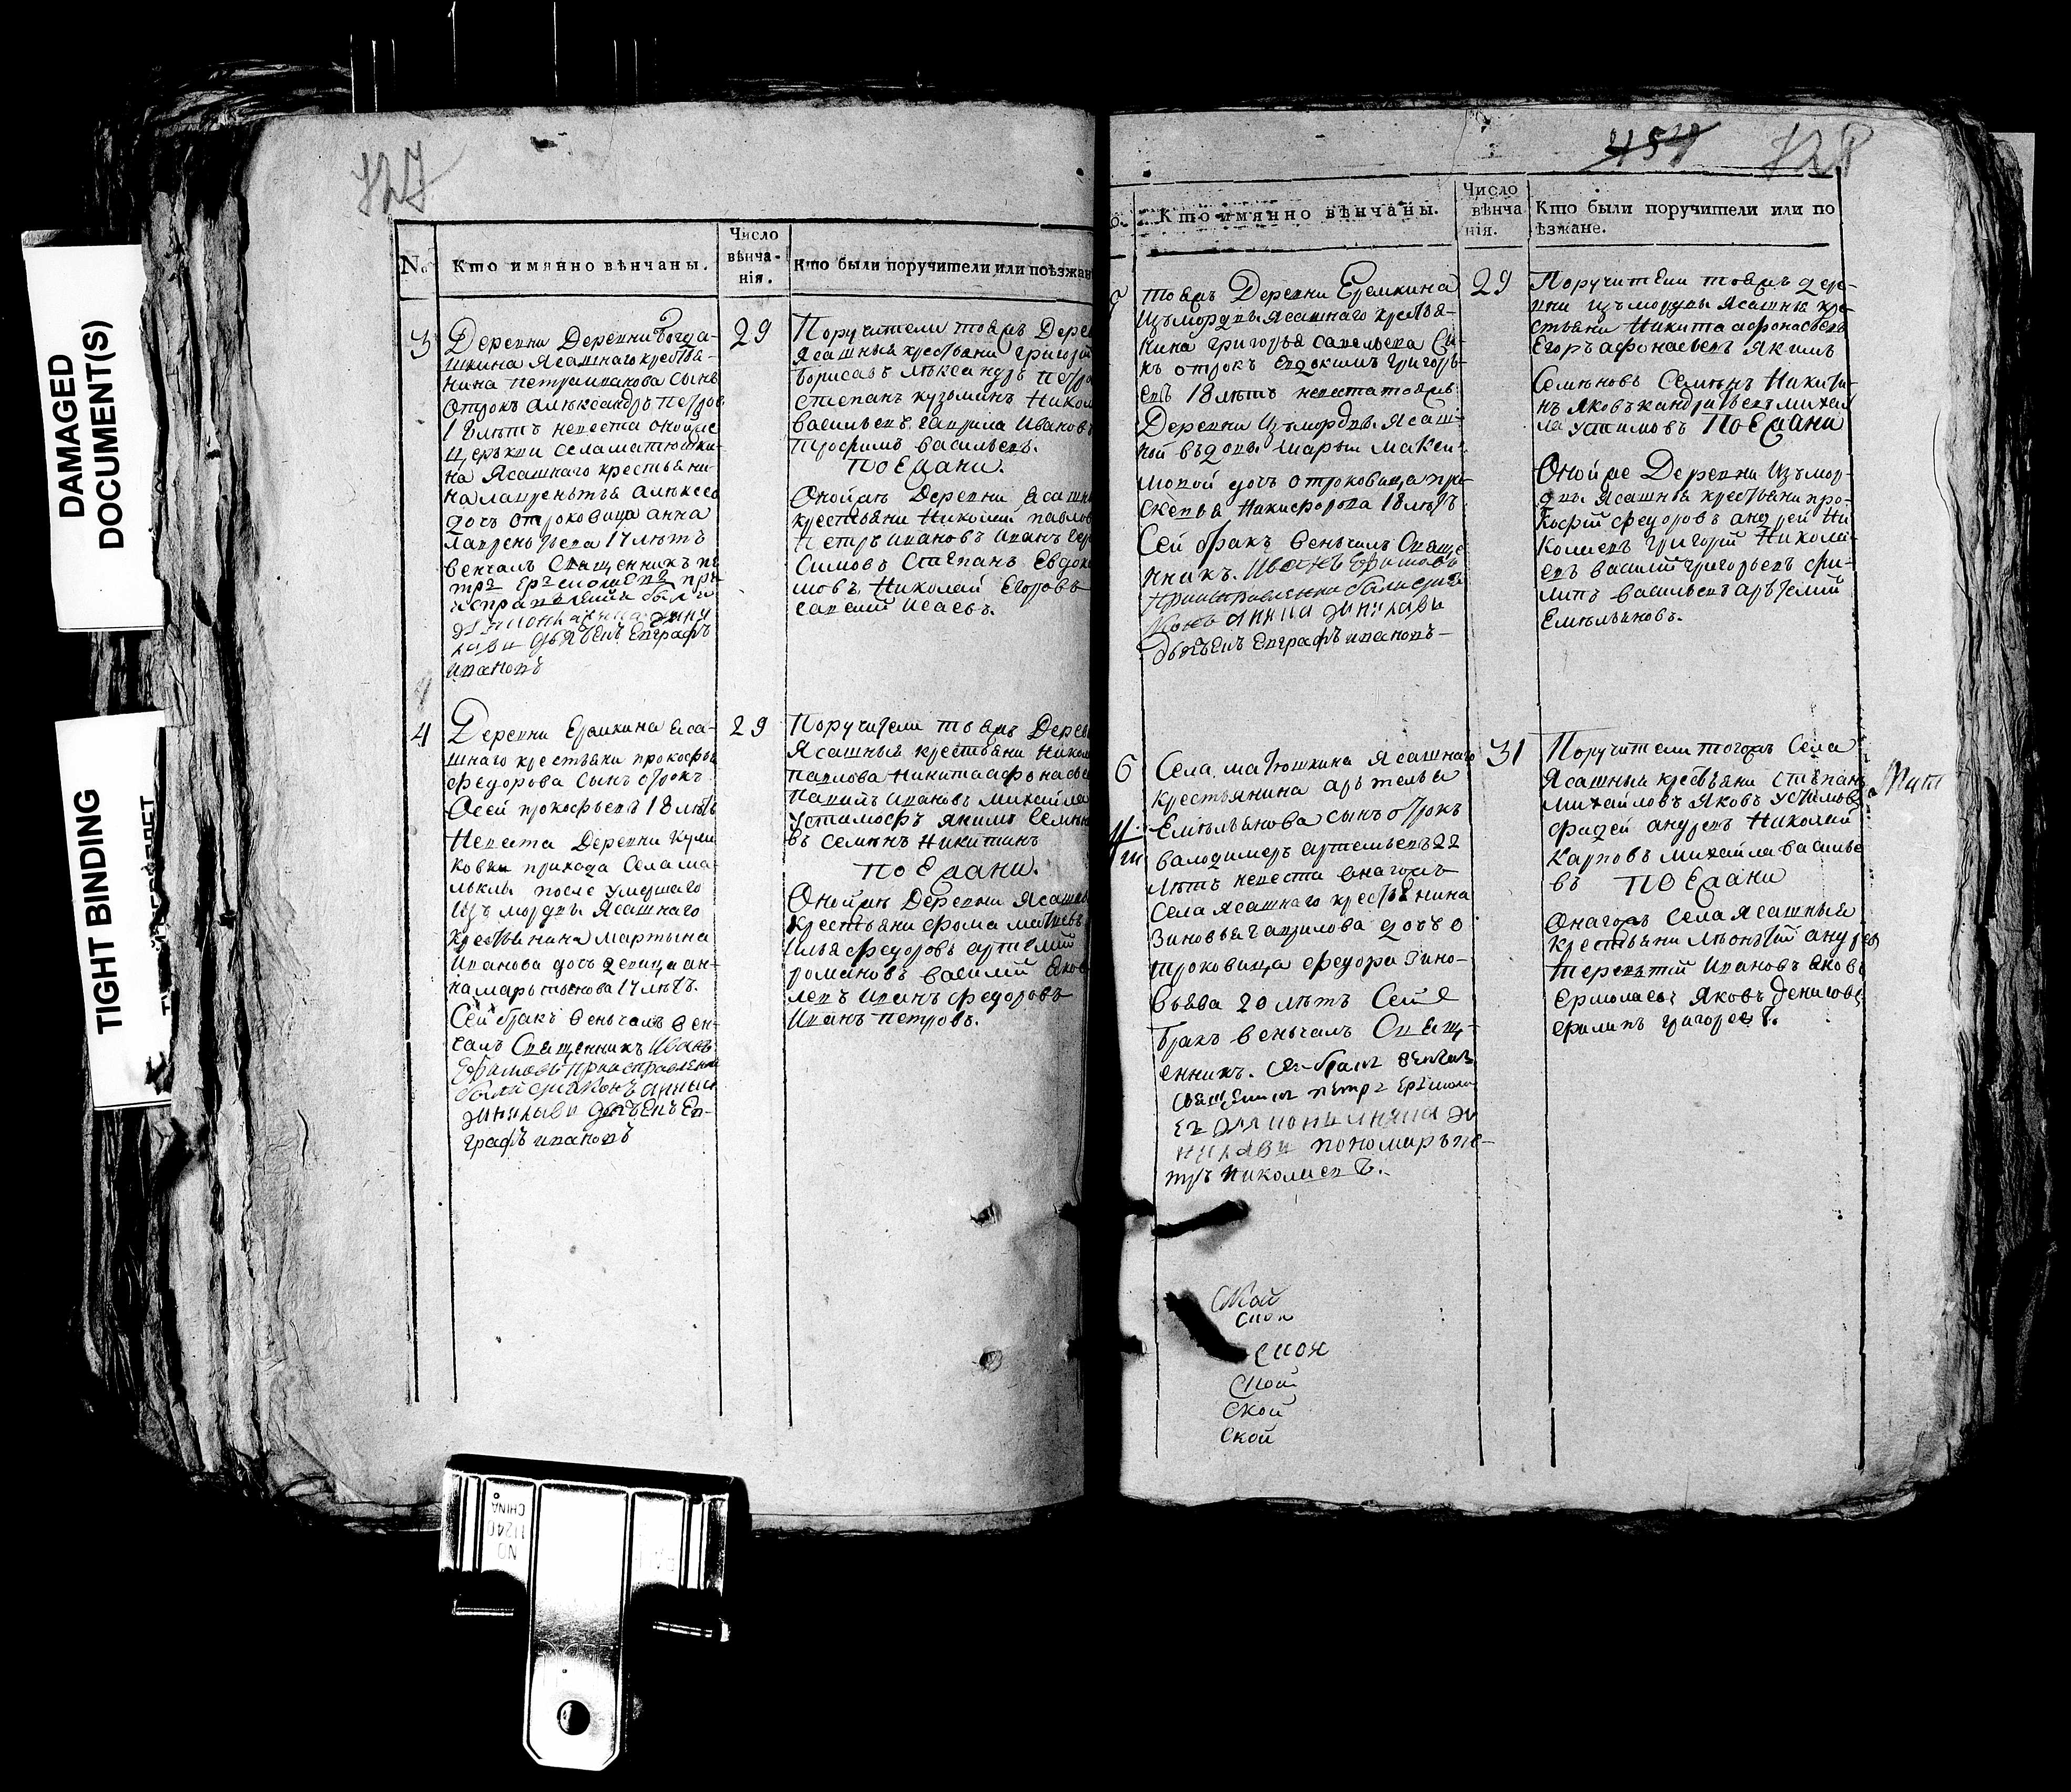 DAMAGED
DOCUMENT(S)
TIGHT BINDING
727
No
Кто имянно вѣнчаны.
Число
вѣнча-
нія.
Кто были поручители или поѣзжан
3
Деревни Деревни Богда-
шкина Ясашнаго крестья-
нина петра иванова сынъ
отрокъ алѣксандръ петров
18 лѣтъ невеста оной же
церькви села матюшки-
на Ясашнаго крестьяни-
на лаврентья алѣксеева
дочь отроковица анна
лаврентьева 17 лѣтъ
венчалъ Священникъ пе
тръ
Дьячекъ Евграфъ
ивановъ
29
Поручители тоежъ Дерев
Ясашныя крестьяни григорей
борисавъ алѣксандръ петро
степанъ кузоминъ Никол
васильевъ гаврила Ивановъ
трофимъ васильевъ.
поезжани.
Оной же Деревни Ясашны
крестьяни Николай павлов
петръ ивановъ иванъ
симовъ Степанъ Евдоки
мовъ Николай Егоровъ
савелий исаевъ.
4
Деревни Еремкина Яса-
шнаго крестьяни прокофья
федорова сынъ отрокъ
Осей прокофьевъ 18 лѣтъ
Невеста Деревни кули
ковки прихода села ма-
лыклы после умершаго
Изъ мордвы Ясашнаго
крестьянина мартына
Иванова дочь девица ан-
на мартынова 17 лѣтъ.
Сей бракъ веньчалъ вен-
чалъ Священникъ Иванъ
Ефимовъ при исправлении
были диаконъ
дьячекъ Ев-
графъ ивановъ
29
Поручители тоежъ Дерев
Ясашныя крестьяни Никол
павлова Никита афонасье
иванъ ивановъ михайла
Устимофъ якимъ Семѣно
въ семѣнъ Никитинъ
поезжани.
Оной же Деревни Ясашны
крестьяни фома матвевъ
Илья федоровъ артемий
романовъ василий Яков
левъ иванъ федоровъ
Иванъ петровъ.
454 728
Кто имянно вѣнчаны.
Число
вѣнча
нія.
Кто были поручители или по
ѣзжане.
тоежъ Деревни Еремкина
Изъ мордвы Ясашнаго крестья-
нина григорья савельева сы-
нъ отрокъ Евдокимъ григорь-
евъ 18 лѣтъ невеста тоежъ
Деревни Изъ мордвы Ясаш-
ной въдовы марьи макси-
мовой дочь отроковица пра-
скевья Никифорова 18 лѣтъ
Сей бракъ веньчалъ Свяще
нникъ. Иванъ Ефимовъ
при исправлении были диа
конъ
дьячекъ Евграфъ ивановъ
29
Поручители тоежъ дере-
вни изъ мордвы Ясашныя кре-
стьяни Никита афонасьевъ
Егоръ афонасьевъ Якимъ
Семѣновъ Семѣнъ Никити-
нъ яковъ кандратьевъ михай
ла устимовъ Поезжани
Оной же Деревни Изъ мор-
двы Ясашныя крестьяни про-
кофий федоровъ андрей Ни
колаевъ григорий Никола-
евъ василий григорьевъ фи-
липъ васильевъ арьтемий
Емѣльяновъ.
6
Села матюшкина Ясашнаго
крестьянина арьтемья
Емѣльянова сынъ отрокъ
валодимеръ артемьевъ 22
лѣтъ невеста онагожъ
села ясашнаго крестьянина
Зиновья гаврилова дочь о
троковица федора Зино-
вьева 20 лѣтъ Сей
бракъ веньчалъ Свящ-
енникъ. Сей бракъ венчалъ
священникъ петръ Ермола
евъ
пономаръ пе-
тръ Николаевъ.
31
Поручители тогожъ Села
Ясашныя крестьяни степанъ
михайловъ яковъ Устимовъ
фадей андревъ Николай
карповъ михайла василье
въ поезжани
Онагожъ Села Ясашныя
крестьяни лѣонтий андрев
терентий ивановъ яков
Ермолаевъ яковъ денисовъ
филипъ григоревъ.
Ской
Ской
Ской
Ской
Ской
Ской
NO
11240
CHINA